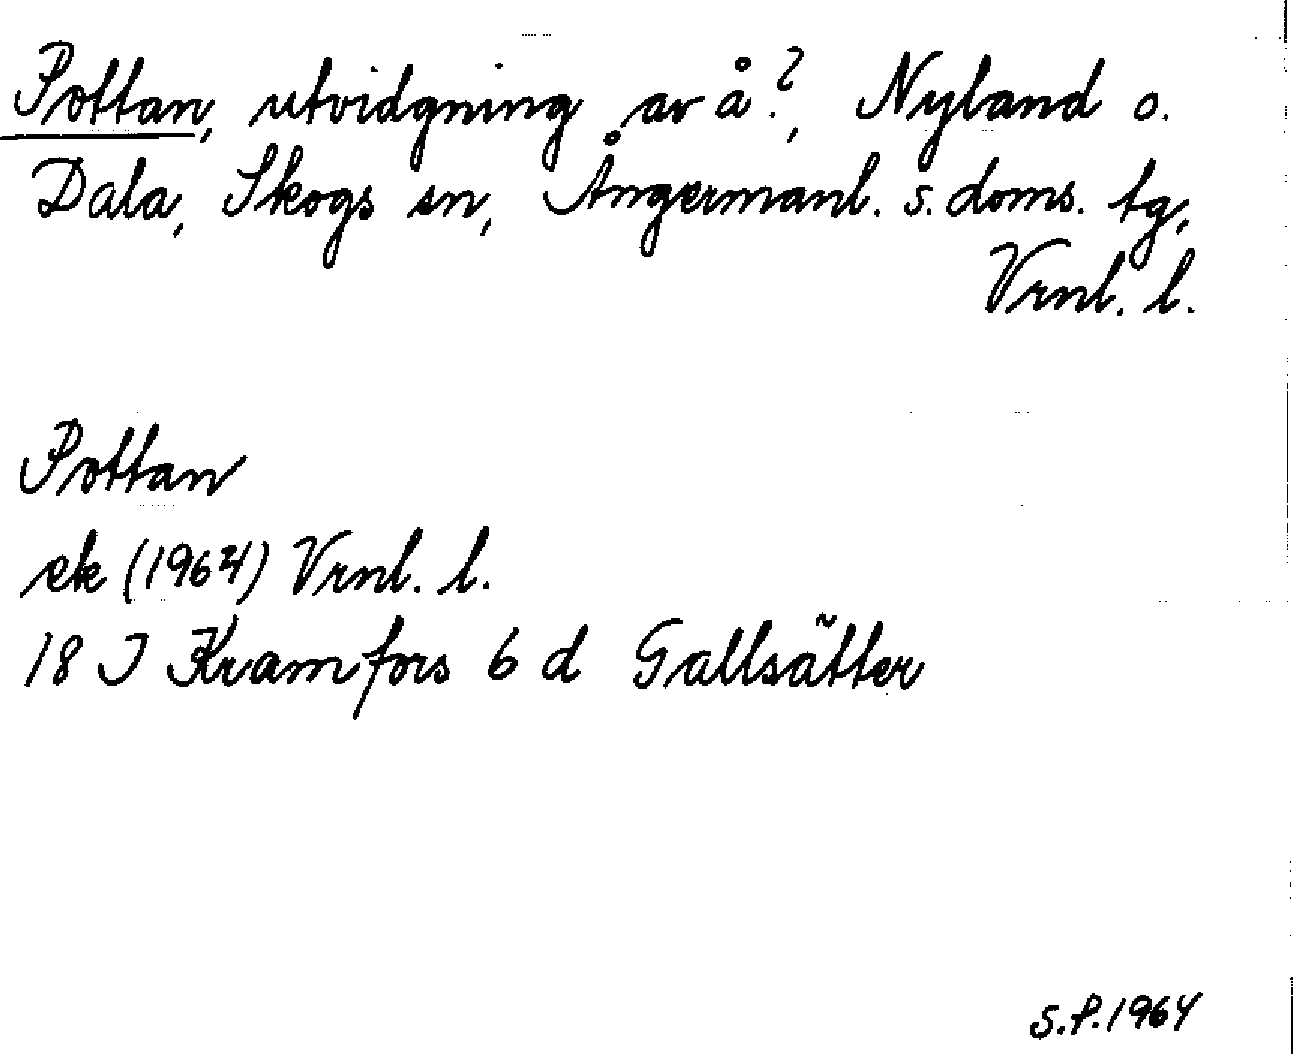 Pottan, utvidgning av å?, Nyland o.
Dala, Skogs sn, Ångermanl. s. doms. tg,
Vrnl. l.
Pottan
ek (1964) Vrnl. l.
18 J Kramfors 6 d Gallsätter
S.P. 1964